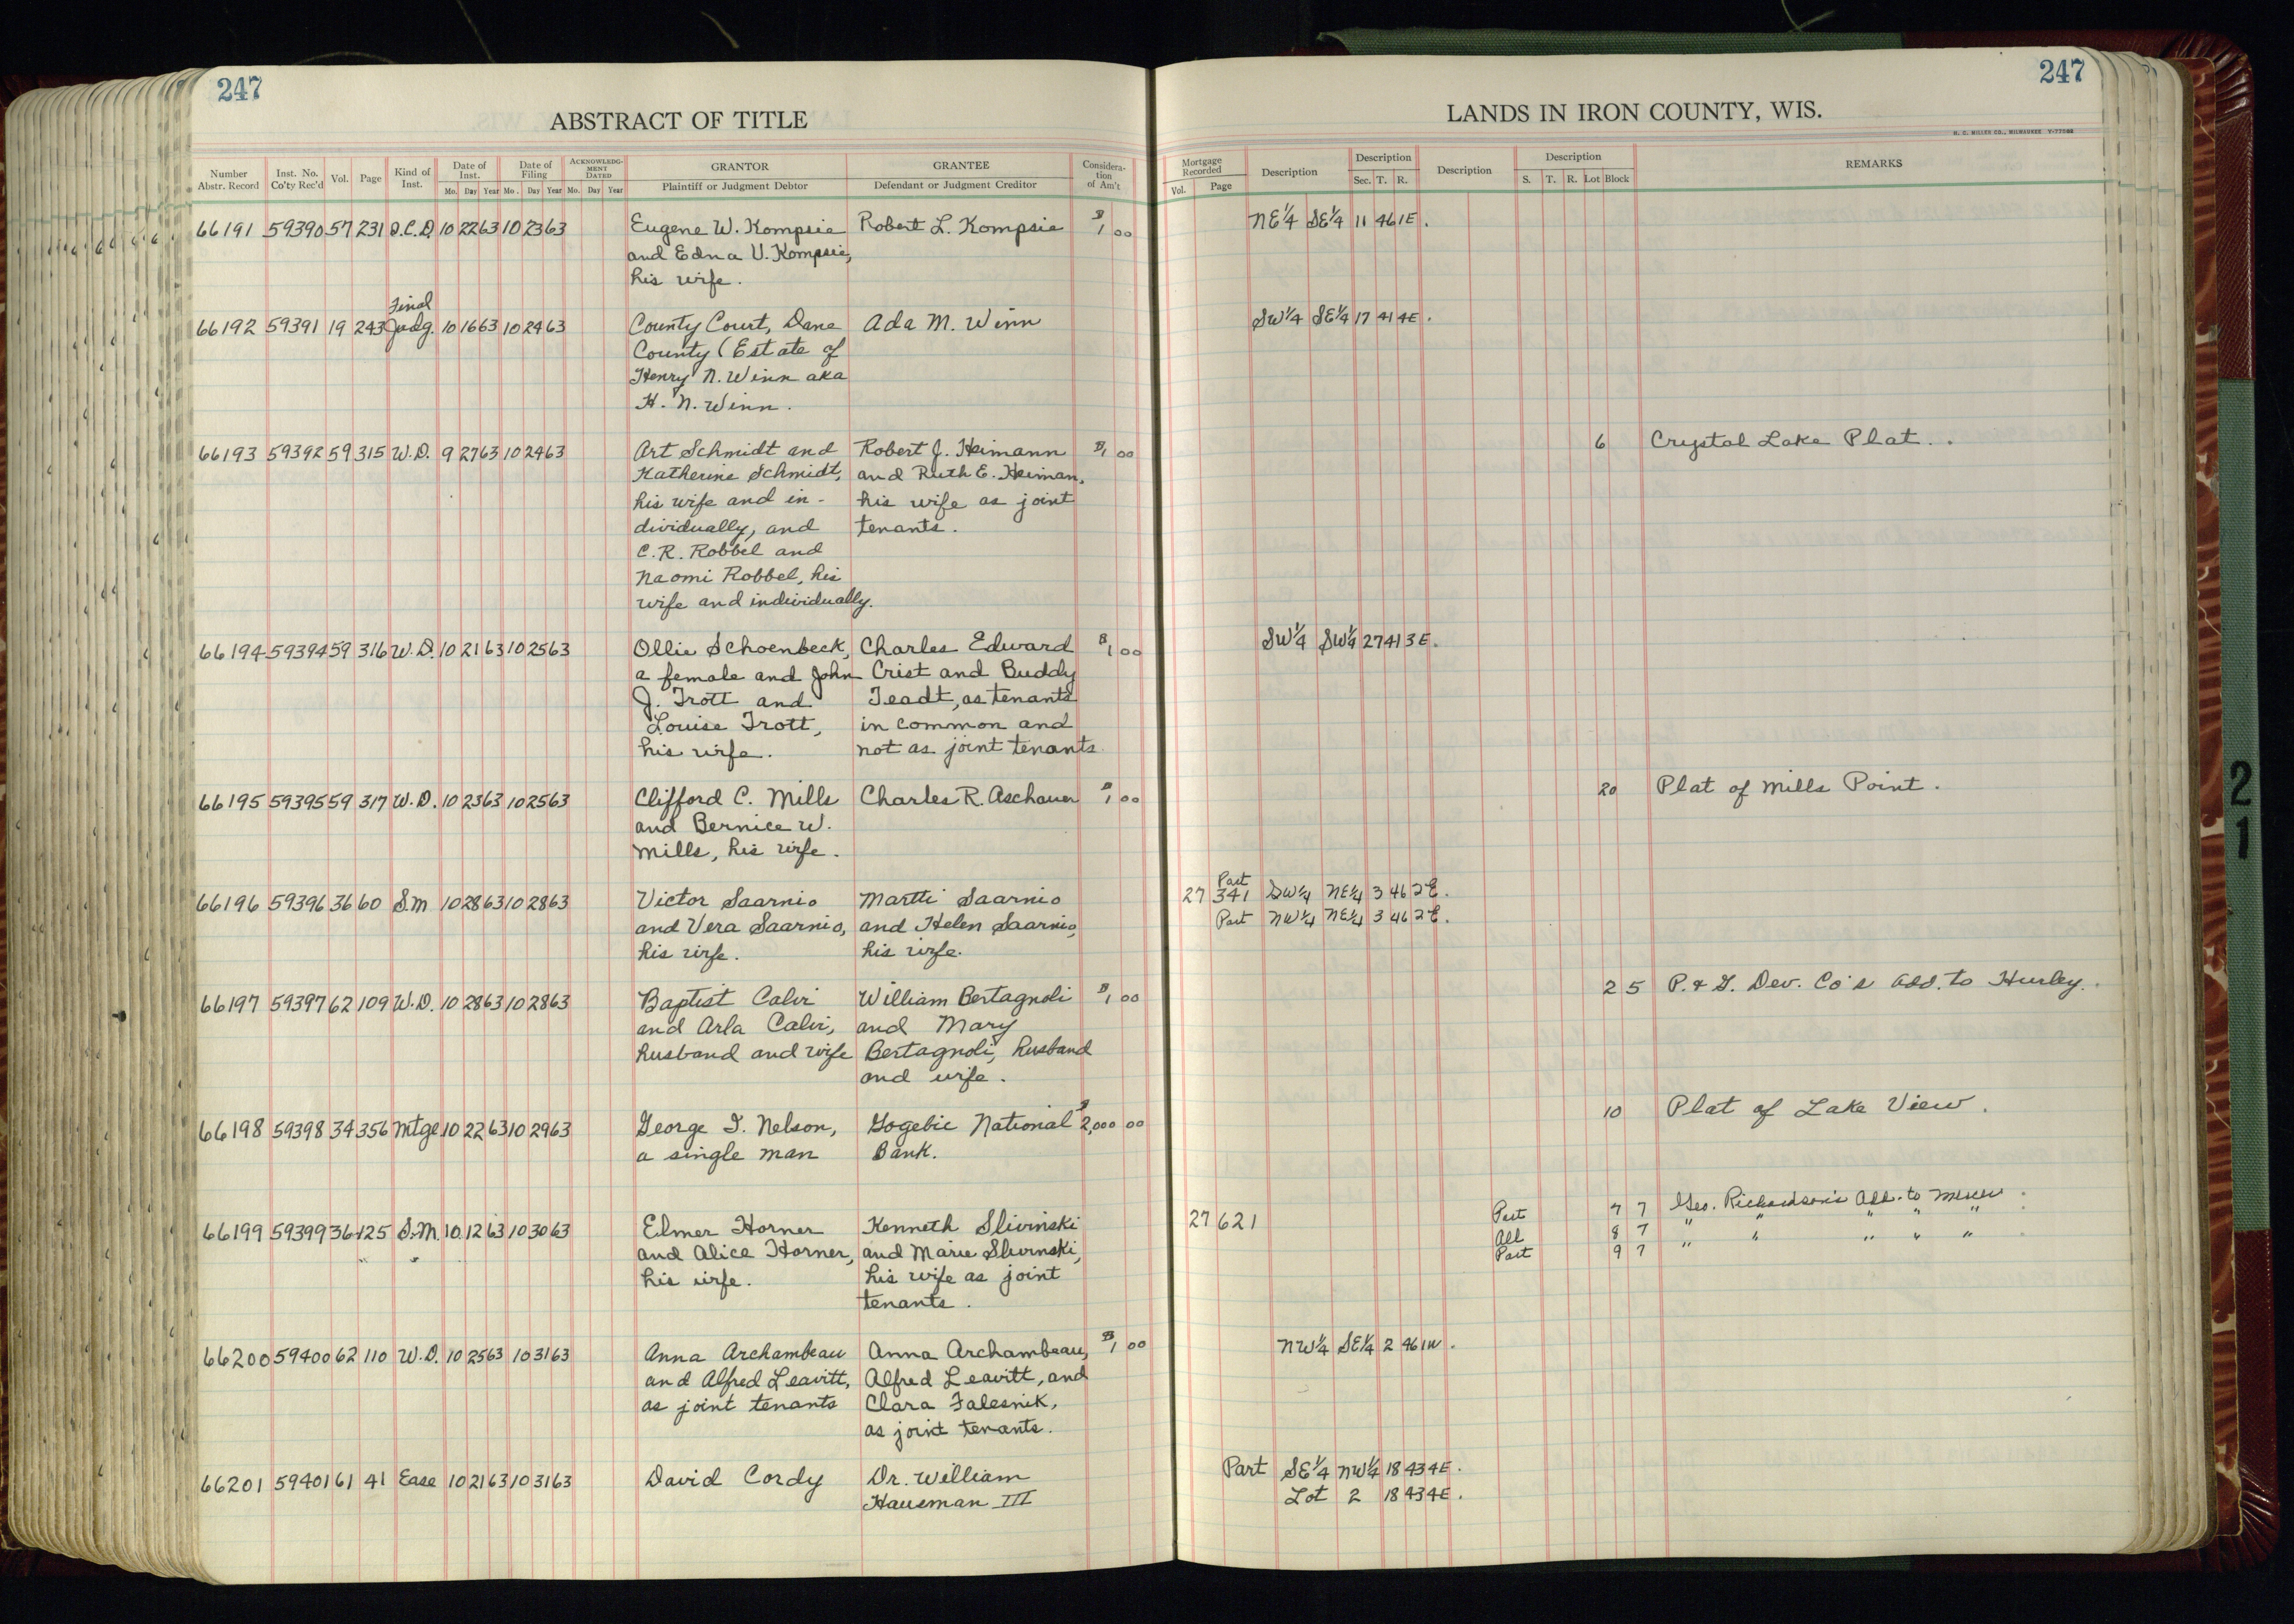 247
ABSTRACT OF TITLE
Number Abstr. Record | Inst. No. Co'ty Rec'd | Vol. | Page | Kind of Inst. | Date of Inst. Mo. Day Year | Date of Filing Mo. Day Year | ACKNOWLEDGMENT DATED Mo. Day Year | GRANTOR Plaintiff or Judgment Debtor | GRANTEE Defendant or Judgment Creditor | Consideration of Am't
66191 59390 57 231 Q.C.D. 10 22 63 10 23 63 Eugene W. Kompsie Robert L. Kompsie $1 00
and Edna V. Kompsie,
his wife.
Final
66192 59391 19 243 Judg. 10 16 63 10 24 63 County Court, Dane Ada M. Winn
County (Estate of
Henry N. Winn aka
H. N. Winn.
66193 59392 59 315 W.D. 9 27 63 10 24 63 Art Schmidt and Robert J. Heimann $1 00
Katherine Schmidt, and Ruth E. Heiman,
his wife and in- his wife as joint
dividually, and tenants.
C.R. Robbel and
Naomi Robbel, his
wife and individually.
66194 59394 59 316 W.D. 10 21 63 10 25 63 Ollie Schoenbeck, Charles Edward $1 00
a female and John Crist and Buddy
J. Trott and Teadt, as tenants
Louise Trott, in common and
his wife. not as joint tenants
66195 59395 59 317 W.D. 10 23 63 10 25 63 Clifford C. Mills Charles R. Aschauer $1 00
and Bernice W.
Mills, his wife.
66196 59396 36 60 S.M 10 28 63 10 28 63 Victor Saarnio Martti Saarnio
and Vera Saarnio, and Helen Saarnio,
his wife. his wife.
66197 59397 62 109 W.D. 10 28 63 10 28 63 Baptist Calvi William Bertagnoli $1 00
and Arla Calvi, and Mary
husband and wife Bertagnoli, husband
and wife.
66198 59398 34 356 Mtge 10 22 63 10 29 63 George T. Nelson, Gogebic National $2,000 00
a single man Bank.
66199 59399 36 125 S.M. 10 12 63 10 30 63 Elmer Horner Kenneth Slivinski
and Alice Horner, and Marie Slivinski,
his wife. his wife as joint
tenants.
66200 59400 62 110 W.D. 10 25 63 10 31 63 Anna Archambeau Anna Archambeau, $1 00
and Alfred Leavitt, Alfred Leavitt, and
as joint tenants Clara Falesnik,
as joint tenants.
66201 59401 61 41 Ease 10 21 63 10 31 63 David Cordy Dr. William
Hausman III
247
LANDS IN IRON COUNTY, WIS.
H. C. MILLER CO., MILWAUKEE Y-77086
Mortgage Recorded Vol. Page | Description | Description Sec. T. R. | Description | Description S. T. R. Lot Block | REMARKS
NE¼ SE¼ 11 46 1E.
SW¼ SE¼ 17 41 4E.
6 Crystal Lake Plat.
SW¼ SW¼ 27 41 3E.
20 Plat of Mills Point.
Part
27 341 SW¼ NE¼ 3 46 2E.
Part NW¼ NE¼ 3 46 2E.
2 5 P. & G. Dev. Co's Add. to Hurley.
10 Plat of Lake View.
27 621 Part 7 7 Geo. Richardson's Add. to
All 8 7 " " " " "
Part 9 7 " " " " "
NW¼ SE¼ 2 46 1W.
Part SE¼ NW¼ 18 43 4E.
Lot 2 18 43 4E.
21